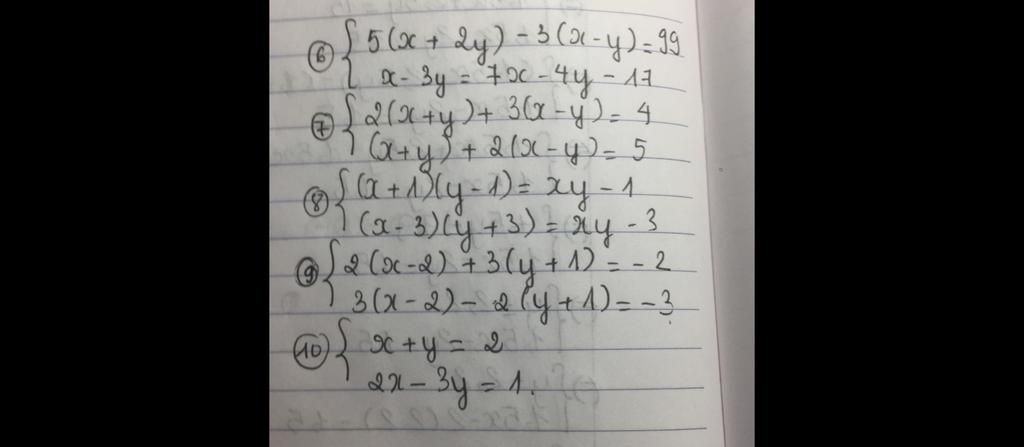 ⑥ { 5(x + 2y) - 3(x - y) = 99
x - 3y = 7x - 4y - 17
⑦ { 2(x + y) + 3(x - y) = 4
(x + y) + 2(x - y) = 5
⑧ { (x + 1)(y - 1) = xy - 1
(x - 3)(y + 3) = xy - 3
⑨ { 2(x - 2) + 3(y + 1) = - 2
3(x - 2) - 2(y + 1) = - 3
⑩ { x + y = 2
2x - 3y = 1.